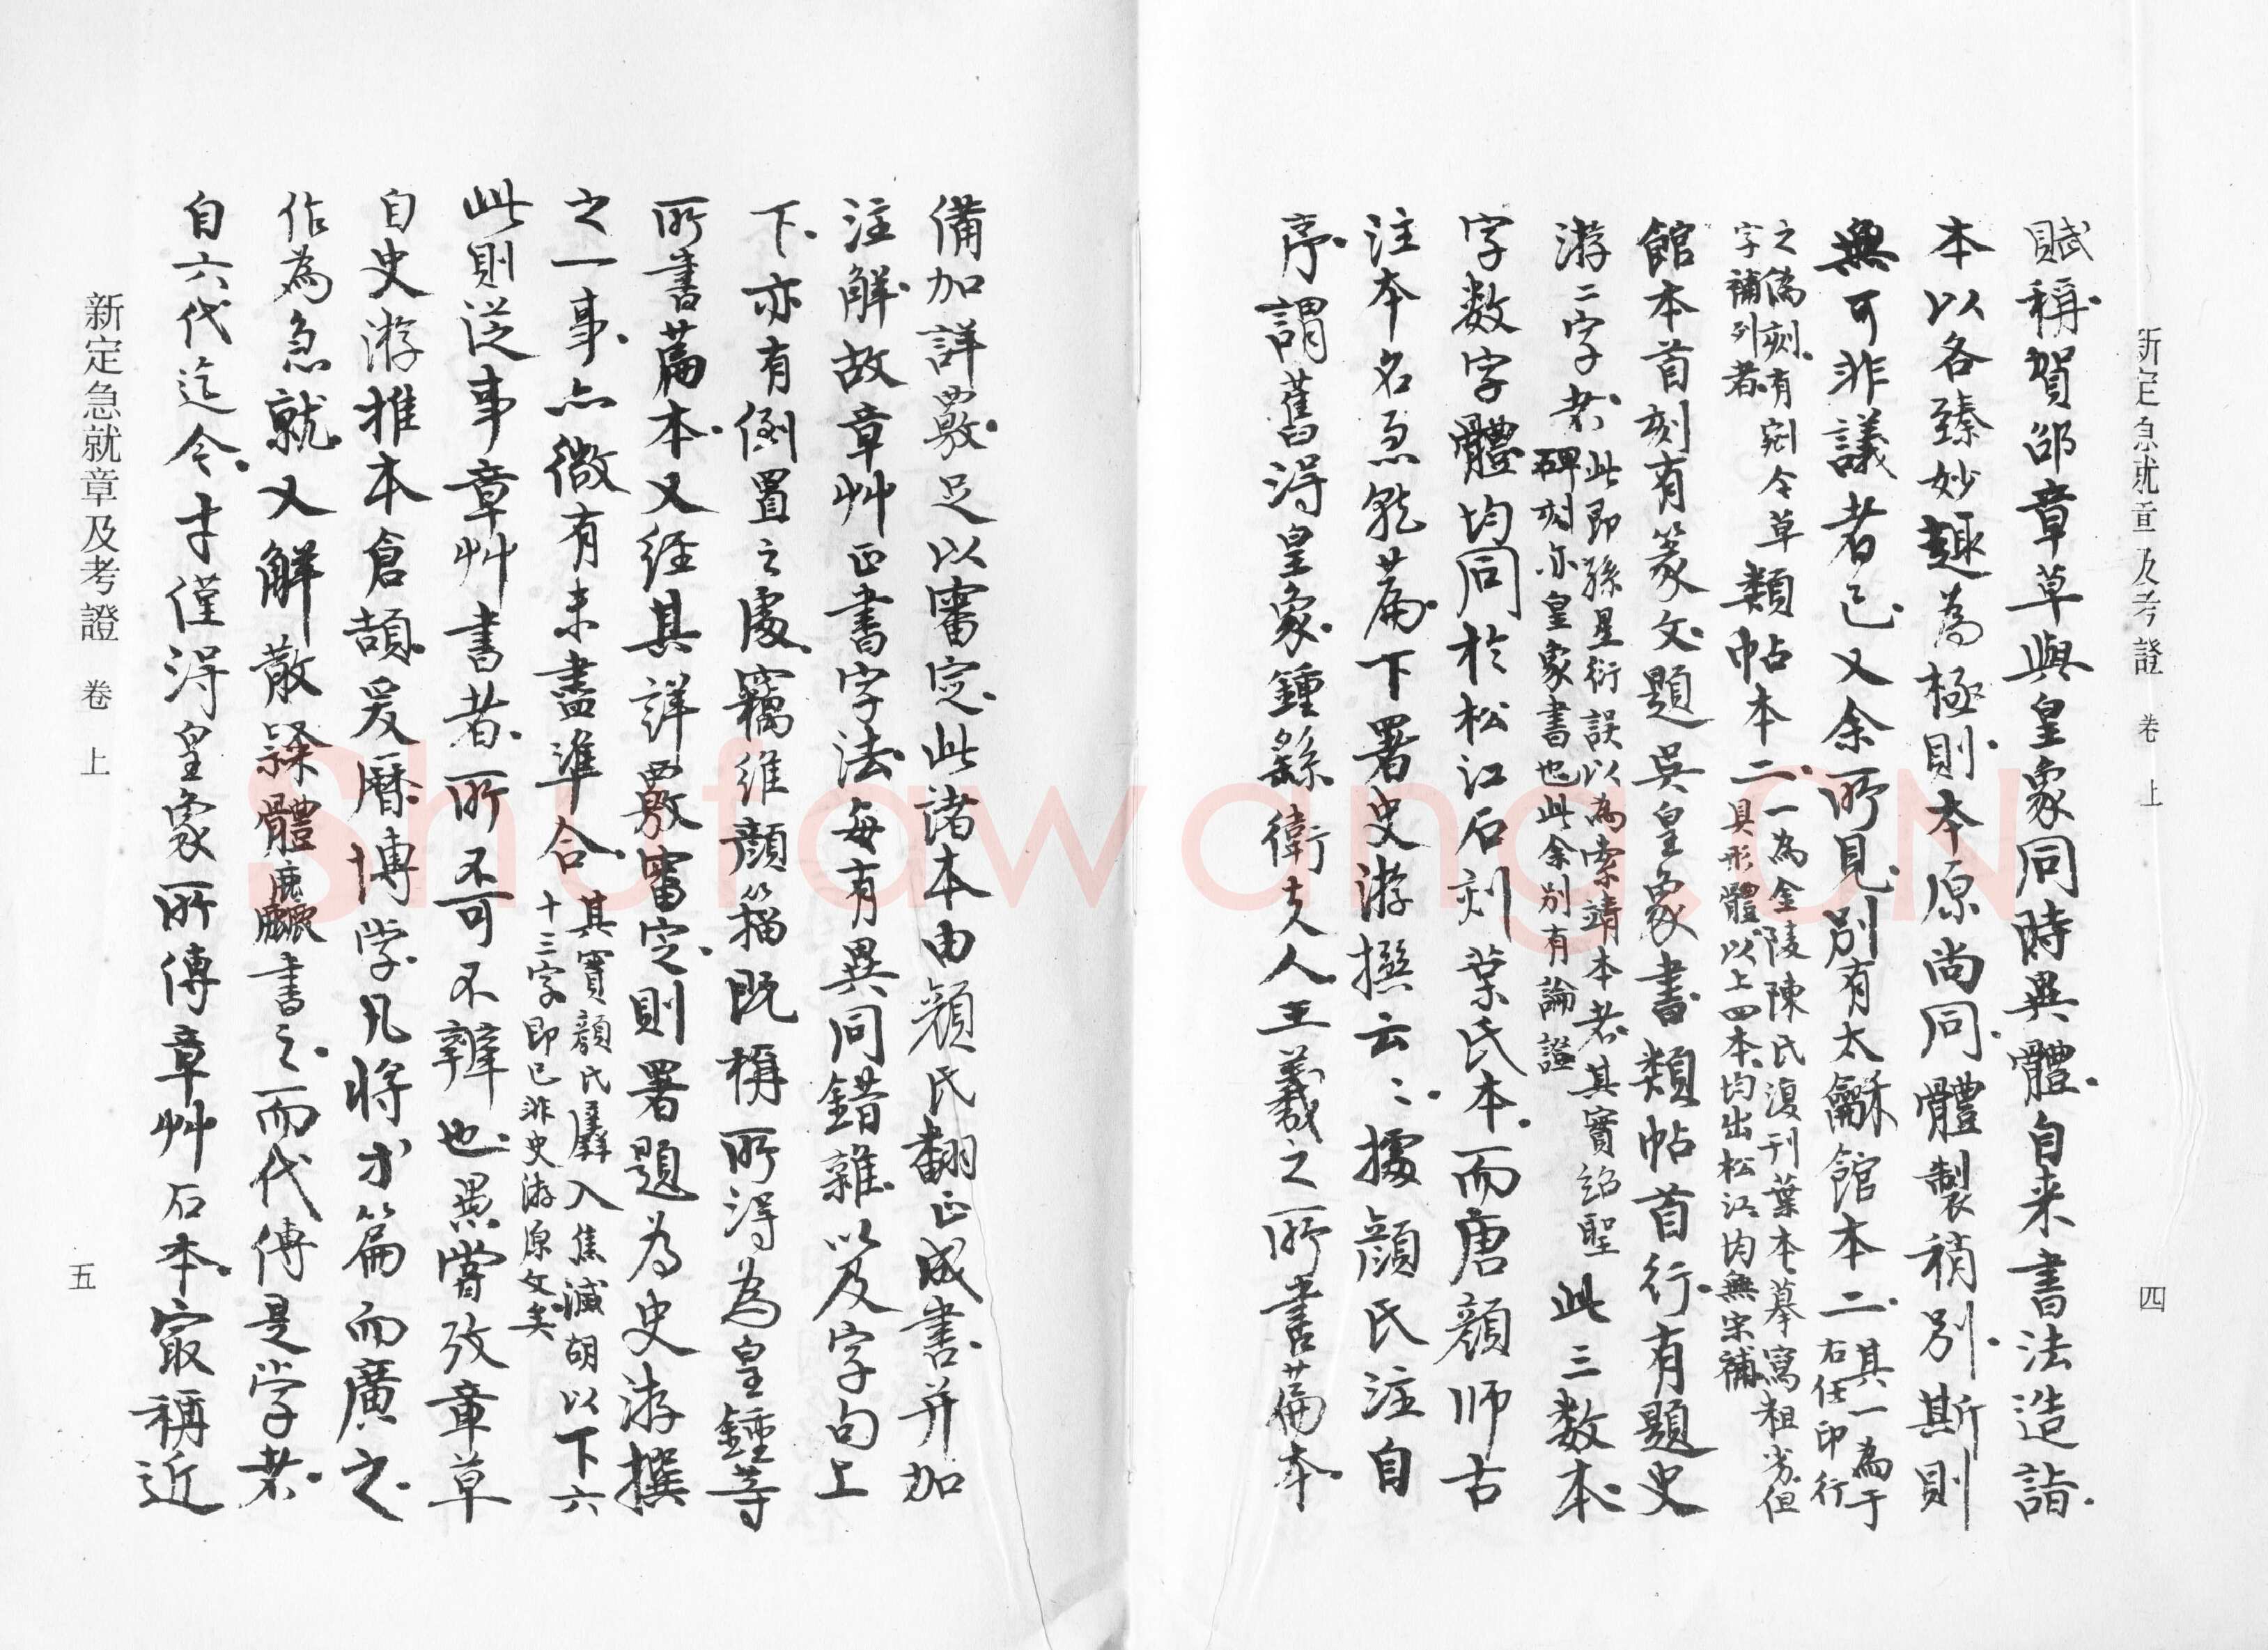 新定急就章及考證 卷 上
四
賦稱賀邵章草與皇象同時異體自来書法造詣
本以各臻妙趣為極則本原尚同體製稍別斯則
無可非議者已又余所見別有太龢館本二其一為于右任印行
之偽刻有剜今草字補列者類帖本二一為金陵陳氏復刊葉本摹寫粗劣但具形體以上四本均出松江均無宋補
館本首刻有篆文題吳皇象書類帖首行有題史
游二字者此即孫星衍誤以為索靖本者其實紹聖碑刻亦皇象書也此余別有論證此三數本
字数字體均同於松江石刻葉氏本而唐顏师古
注本名急就篇下署史游撰云〻據顏氏注自
序謂舊得皇象鍾繇衛夫人王羲之所書篇本
備加詳覈足以審定此諸本由顏氏翻正成書并加
注解故章艸正書字法每有異同錯雜以及字句上
下亦有倒置之處竊維顏籀既稱所得為皇鍾等
所書篇本又经其詳覈審定則署題為史游撰
之一事亦微有未盡準合其實顏氏羼入焦滅胡以下六十三字即已非史游原文矣
此則泛事章艸書者所不可不辨也愚嘗攷章草
自史游推本倉頡爰曆博学凡将才篇而廣之
作為急就又解散隸體麤書之而代傳是学者
自六代迄今才僅得皇象所傳章艸石本㝡稱近
新定急就章及考證 卷 上
五
Shufawang.CN